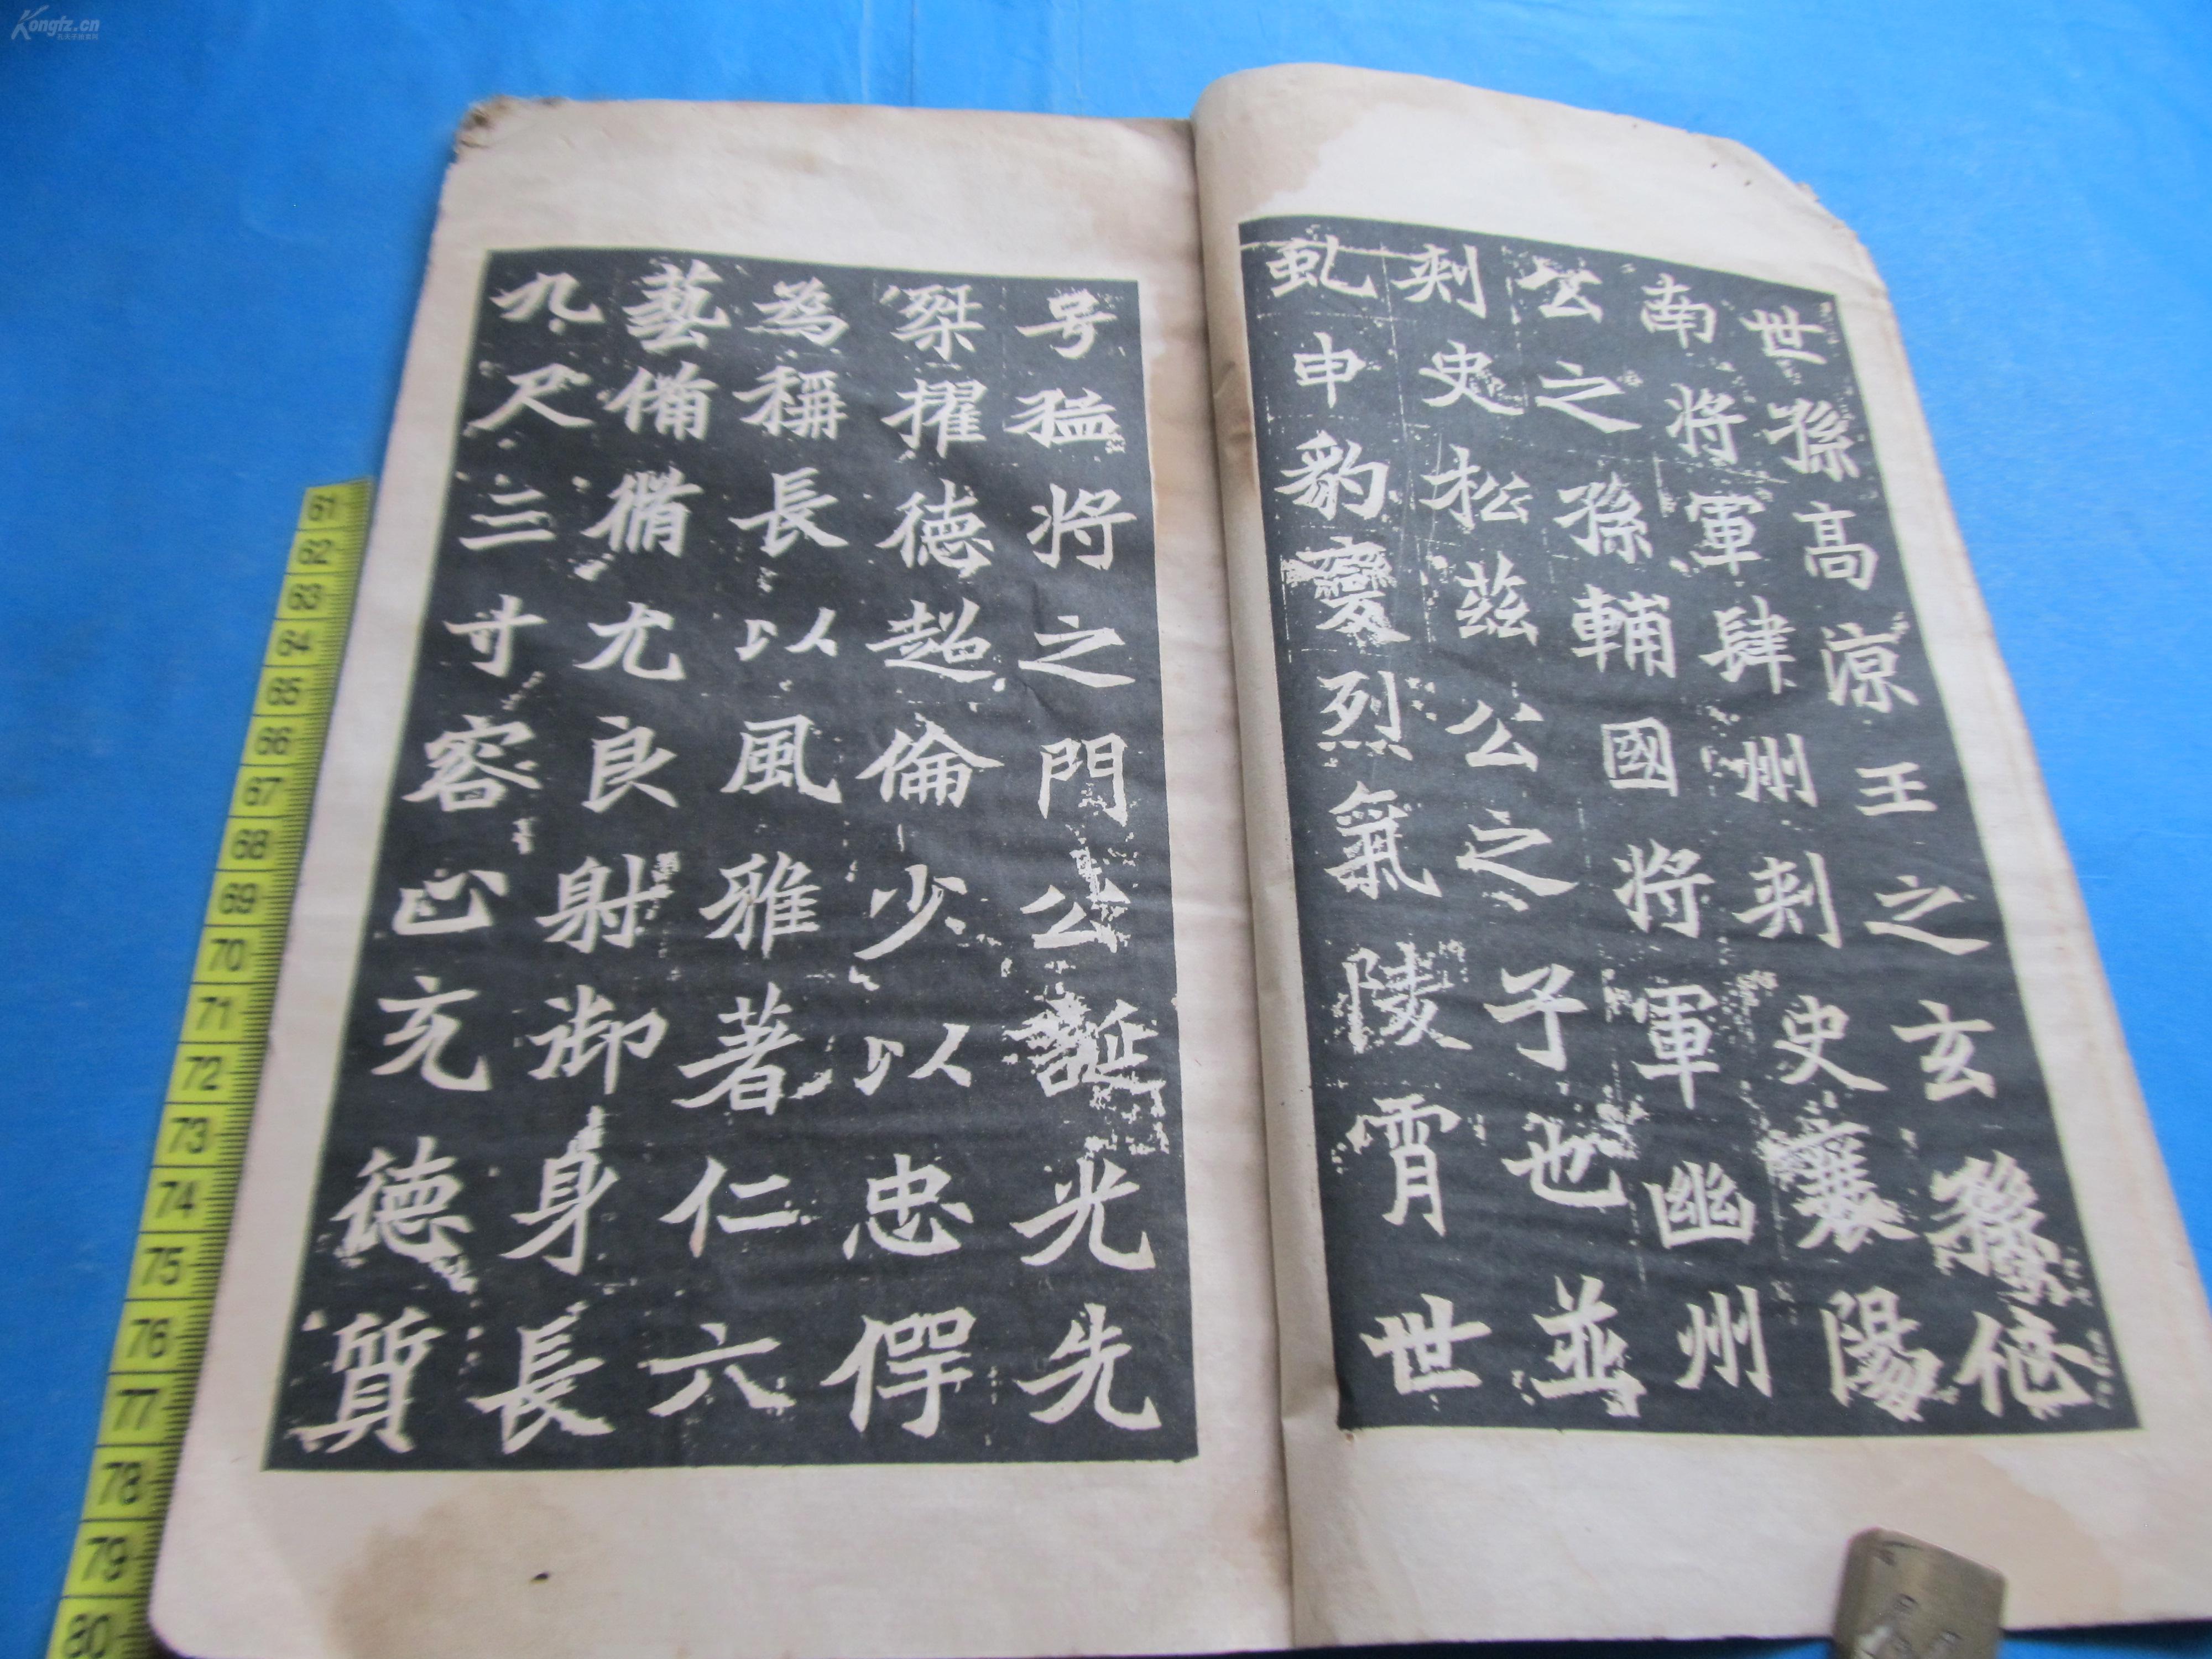 世孫高涼王之玄孫使
南將軍肆州刺史襄陽
公之孫輔國將軍幽州
刺史松茲公之子也並
虬申豹變烈氣陵霄世
号猛將之門公誕光先
桀擢德超倫少以忠㑌
為稱長以風雅著仁六
藝備脩尤良射御身長
九尺三寸容㒵充德質
Kongfz.cn
61
62
63
64
65
66
67
68
69
70
71
72
73
74
75
76
77
78
79
80